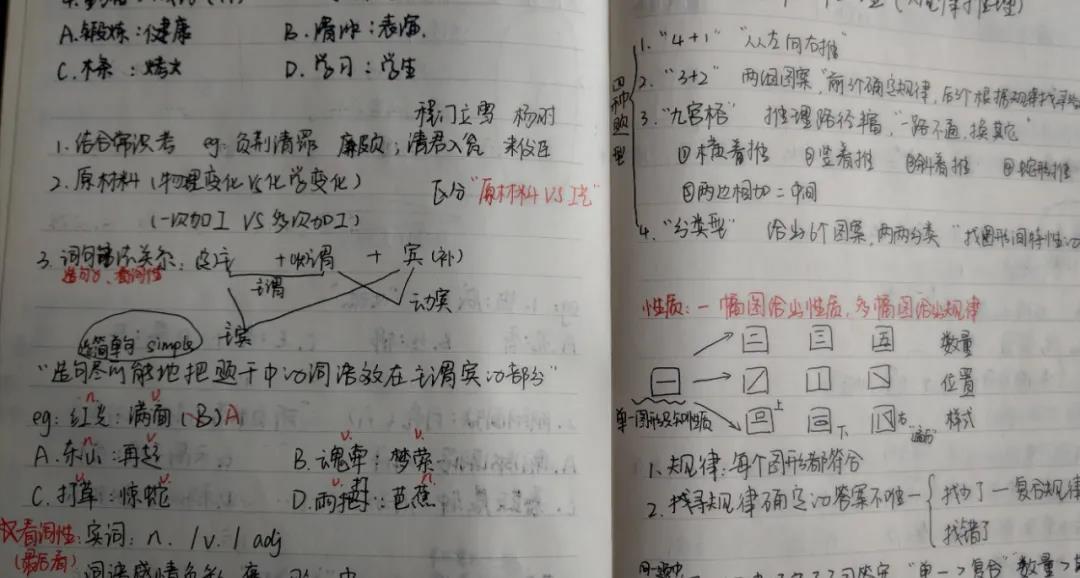 A.锻炼:健康 B.滑冰:表演.
C.木条:烤火 D.学习:学生
程门立雪 杨时
1.结合常识考 eg:负荆请罪 廉颇;请君入瓮 来俊臣
2.原材料(物理变化VS化学变化) 区分"原材料VS工艺"
(一次加工 VS 多次加工)
3.词句 关系: 主 + 谓 + 宾(补)
造句 看词性
主谓
动宾
主宾
造简单句 simple
"造句尽可能地把题干中的词语放在主谓宾的部分"
n. v.
eg:红光:满面(B)A
n. v. v. v.
A.东山:再起 B.魂牵:梦萦
v. v. v. n.
C.打草:惊蛇 D.雨打:芭蕉
看词性:实词: n. / v. / adj
(最后看)
四种题型
1."4+1" "从左向右推"
2."3+2" 两组图案,"前1个确定规律,后1个根据规律找
3."九宫格" 推理路径 ,"一路不通,换其它"
①横着推 ②竖着推 ③斜着推
⑤两边相加=中间
4."分类型" 给出6个图案,两两分类 "找图形间特性
性质:一幅图给出性质,多幅图给出规律
数量
位置
上 下 右 样式
单一图形只知性质
1.规律:每个图形都符合
2.找寻规律确定的答案不唯一
找少了—复合规律
找错了
"单一>复合" 数量>